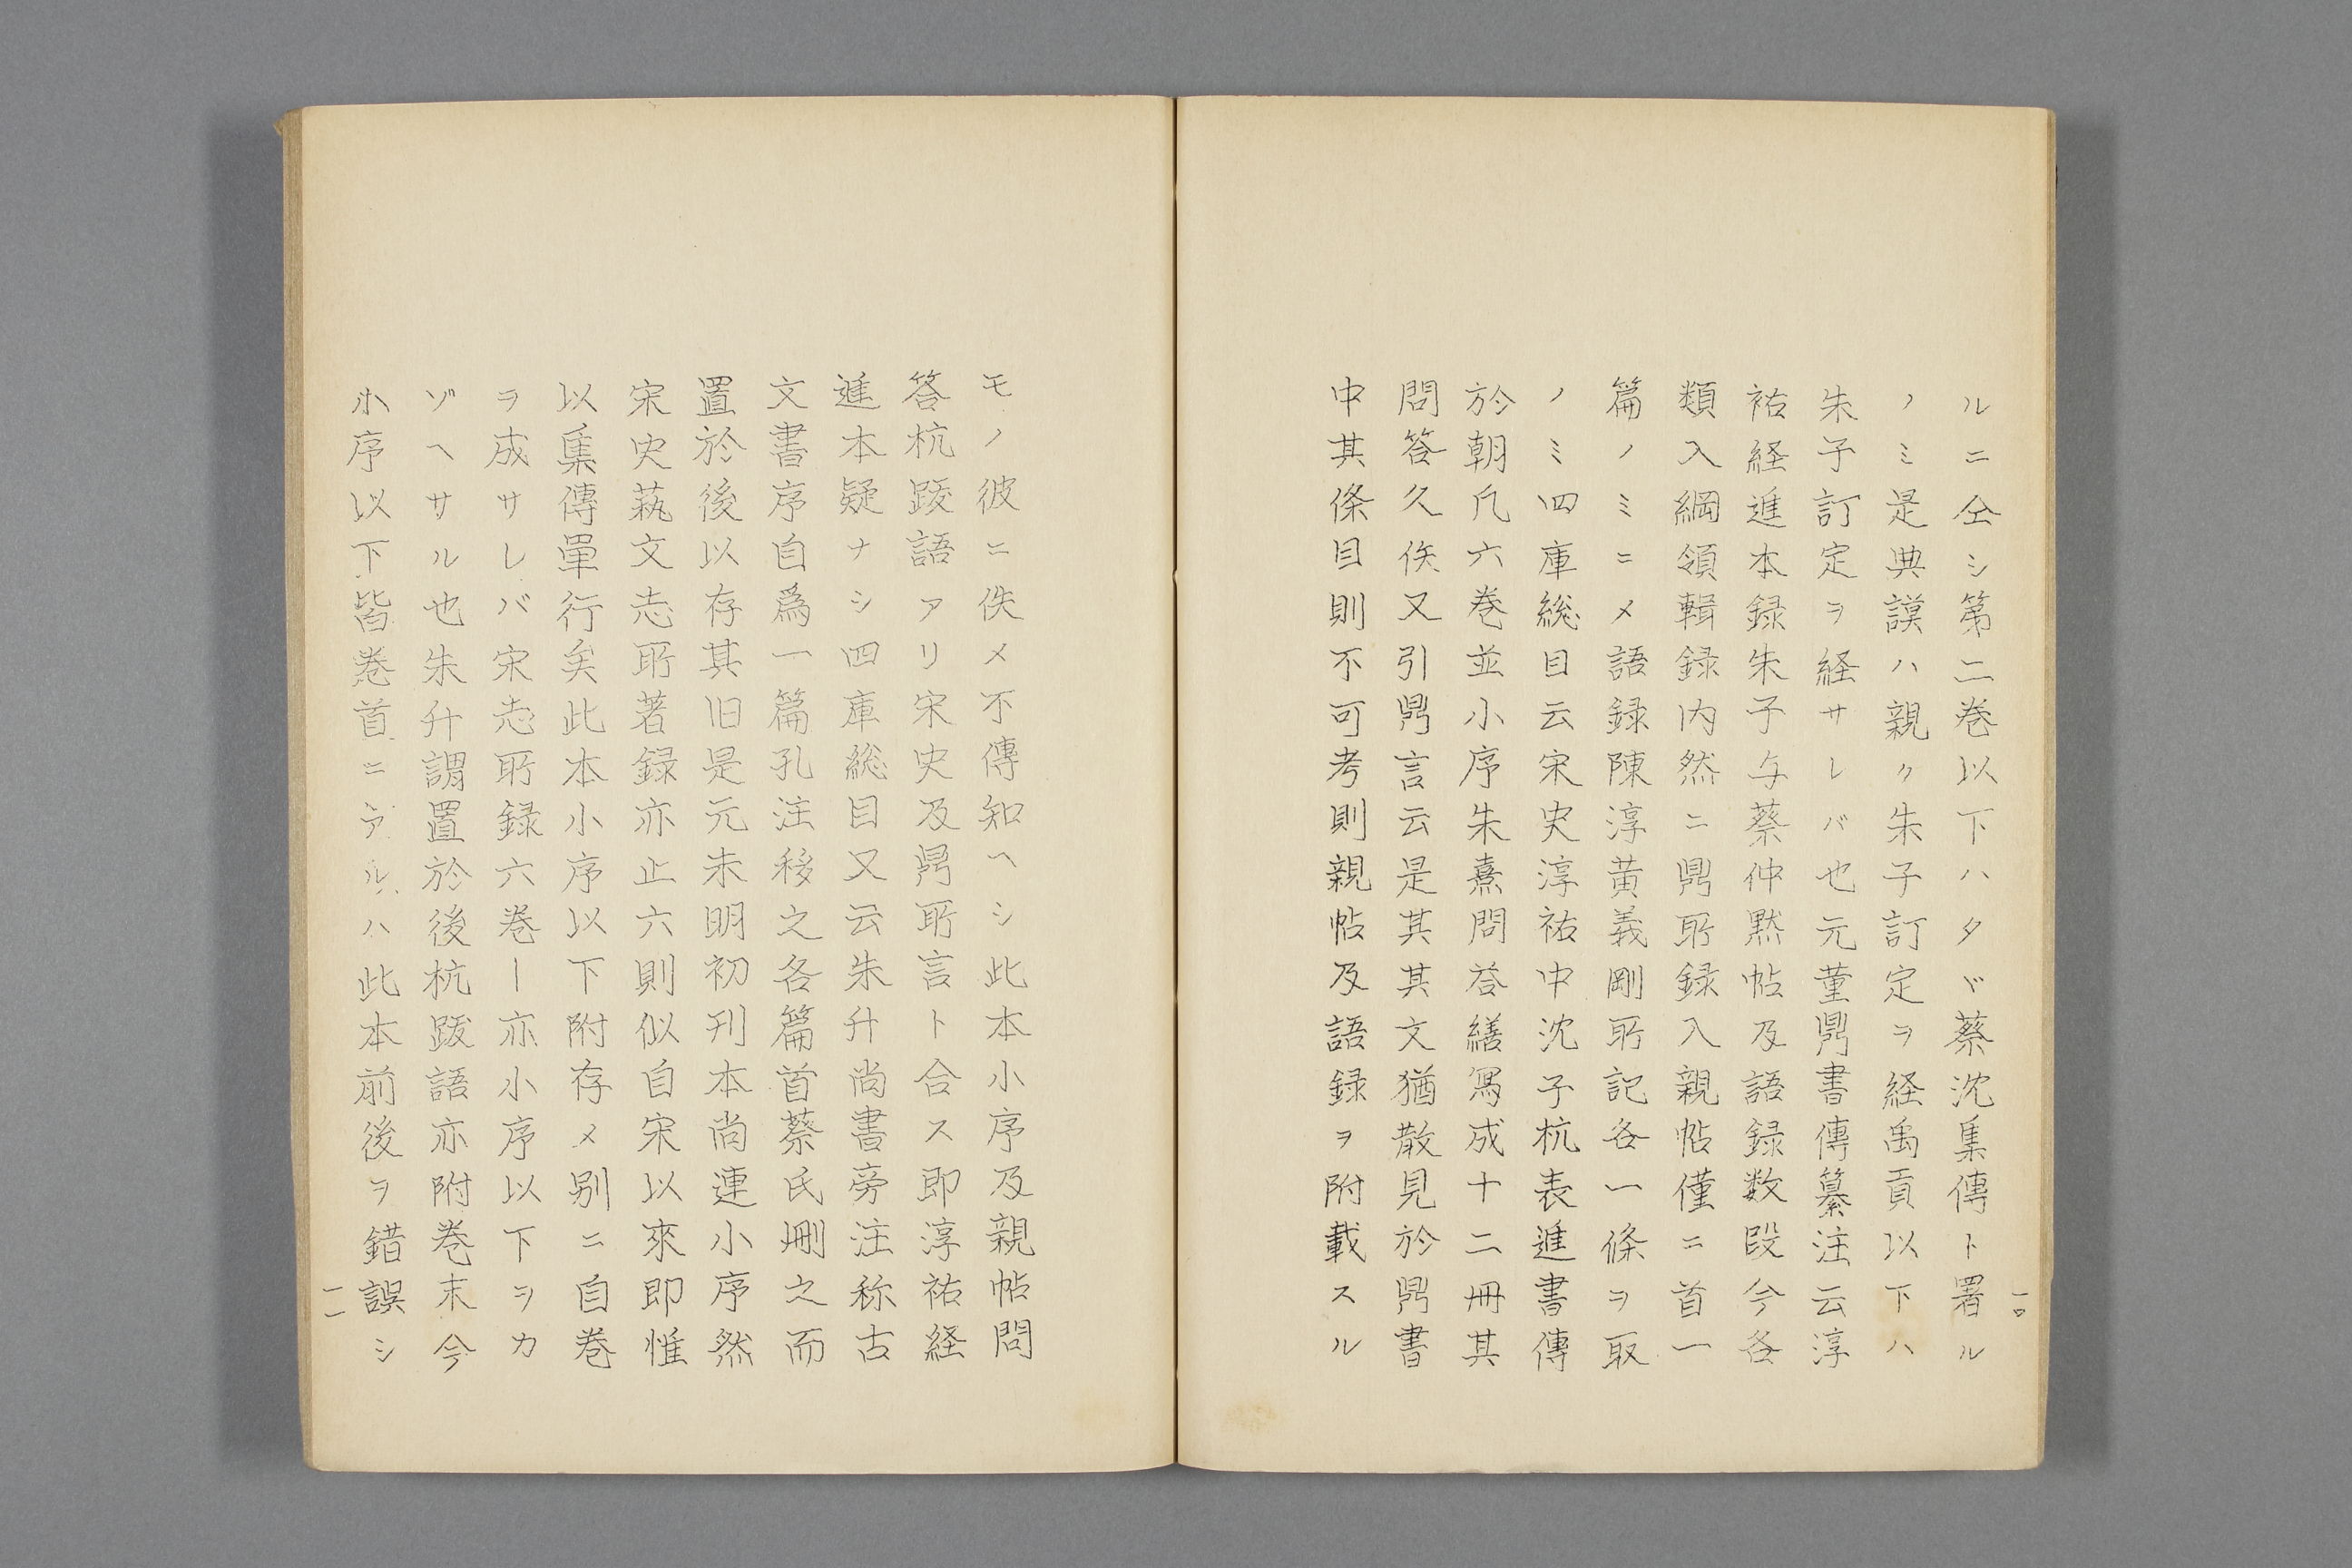 ルニ仝シ第二巻以下ハタヾ蔡沈集傳ト署ル
ノミ是典謨ハ親ク朱子訂定ヲ経禹貢以下ハ
朱子訂定ヲ経サレバ也元董鼎書傳纂注云淳
祐経進本録朱子与蔡仲黙帖及語録数段今各
類入綱領輯録内然ニ鼎所録入親帖僅ニ首一
篇ノミニメ語録陳淳黄義剛所記各一條ヲ取
ノミ四庫総目云宋史淳祐中沈子杭表進書傳
於朝凡六巻並小序朱熹問荅繕冩成十二冊其
問答久佚又引鼎言云是其其文猶散見於鼎書
中其條目則不可考則親帖及語録ヲ附載スル
一〇
モノ彼ニ佚メ不傳知ヘシ此本小序及親帖問
答杭跋語アリ宋史及鼎所言ト合ス即淳祐経
進本疑ナシ四庫総目又云朱升尚書旁注称古
文書序自爲一篇孔注移之各篇首蔡氏刪之而
置於後以存其旧是元末明初刊本尚連小序然
宋史蓺文志所著録亦止六則似自宋以來即惟
以集傳單行矣此本小序以下附存メ別ニ自巻
ヲ成サレバ宋志所録六巻ー亦小序以下ヲカ
ゾヘサル也朱升謂置於後杭跋語亦附巻末今
小序以下皆巻首ニアルハ此本前後ヲ錯誤シ
一一